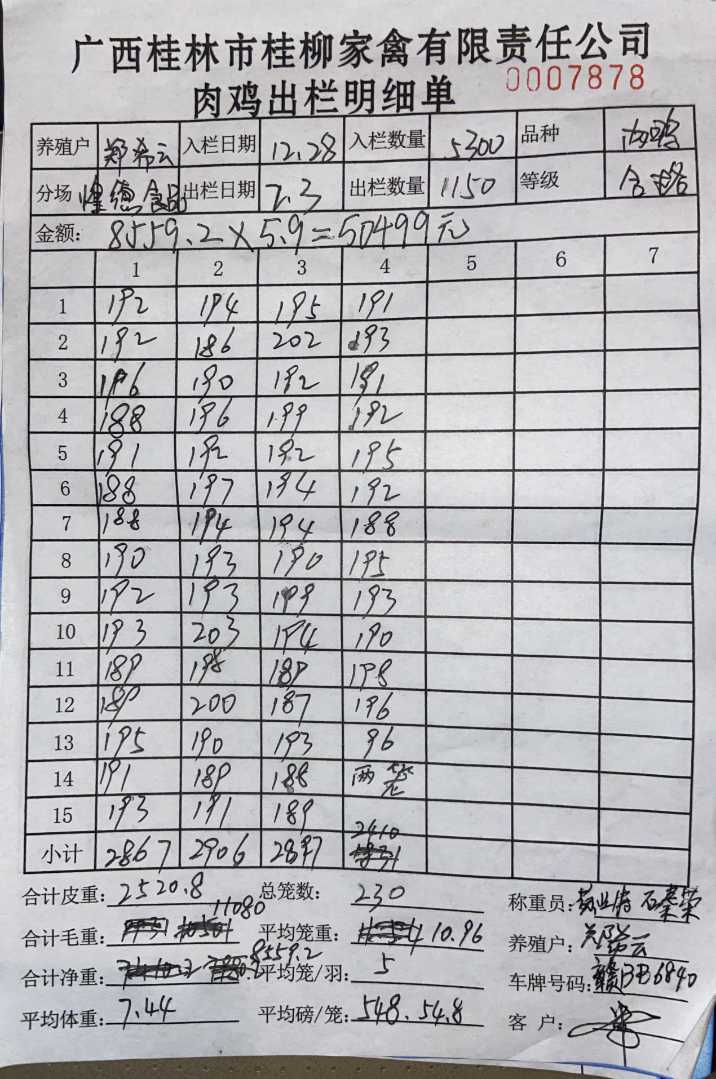 广西桂林市桂柳家禽有限责任公司
肉鸡出栏明细单 0007878
养殖户 郑希云 入栏日期 12.28 入栏数量 5300 品种 肉鸡
分场 煌德食品 出栏日期 2.3 出栏数量 1150 等级 合格
金额: 8559.2×5.9=50499元
1 2 3 4 5 6 7
1 192 194 195 191
2 192 186 202 193
3 196 190 192 191
4 188 196 199 192
5 191 192 192 195
6 188 197 194 192
7 188 194 194 188
8 190 193 190 195
9 192 193 199 193
10 193 203 194 190
11 189 198 189 198
12 189 200 187 196
13 195 190 193 96
14 191 189 188 两笼
15 193 191 189
小计 2867 2906 2897 2410
合计皮重: 2520.8 总笼数: 230 称重员:
合计毛重: 11080 平均笼重: 10.96 养殖户: 郑希云
合计净重: 8559.2 平均笼/羽: 5 车牌号码: 赣BB6840
平均体重: 7.44 平均磅/笼: 548.54.8 客 户: